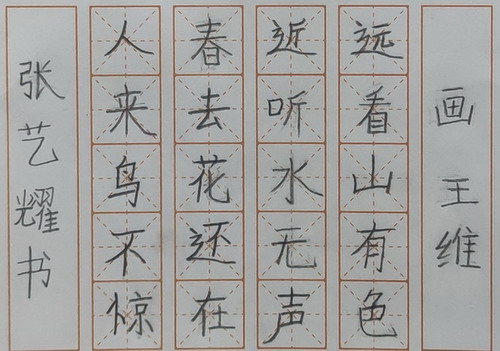 画 王维
远看山有色
近听水无声
春去花还在
人来鸟不惊
张艺耀书